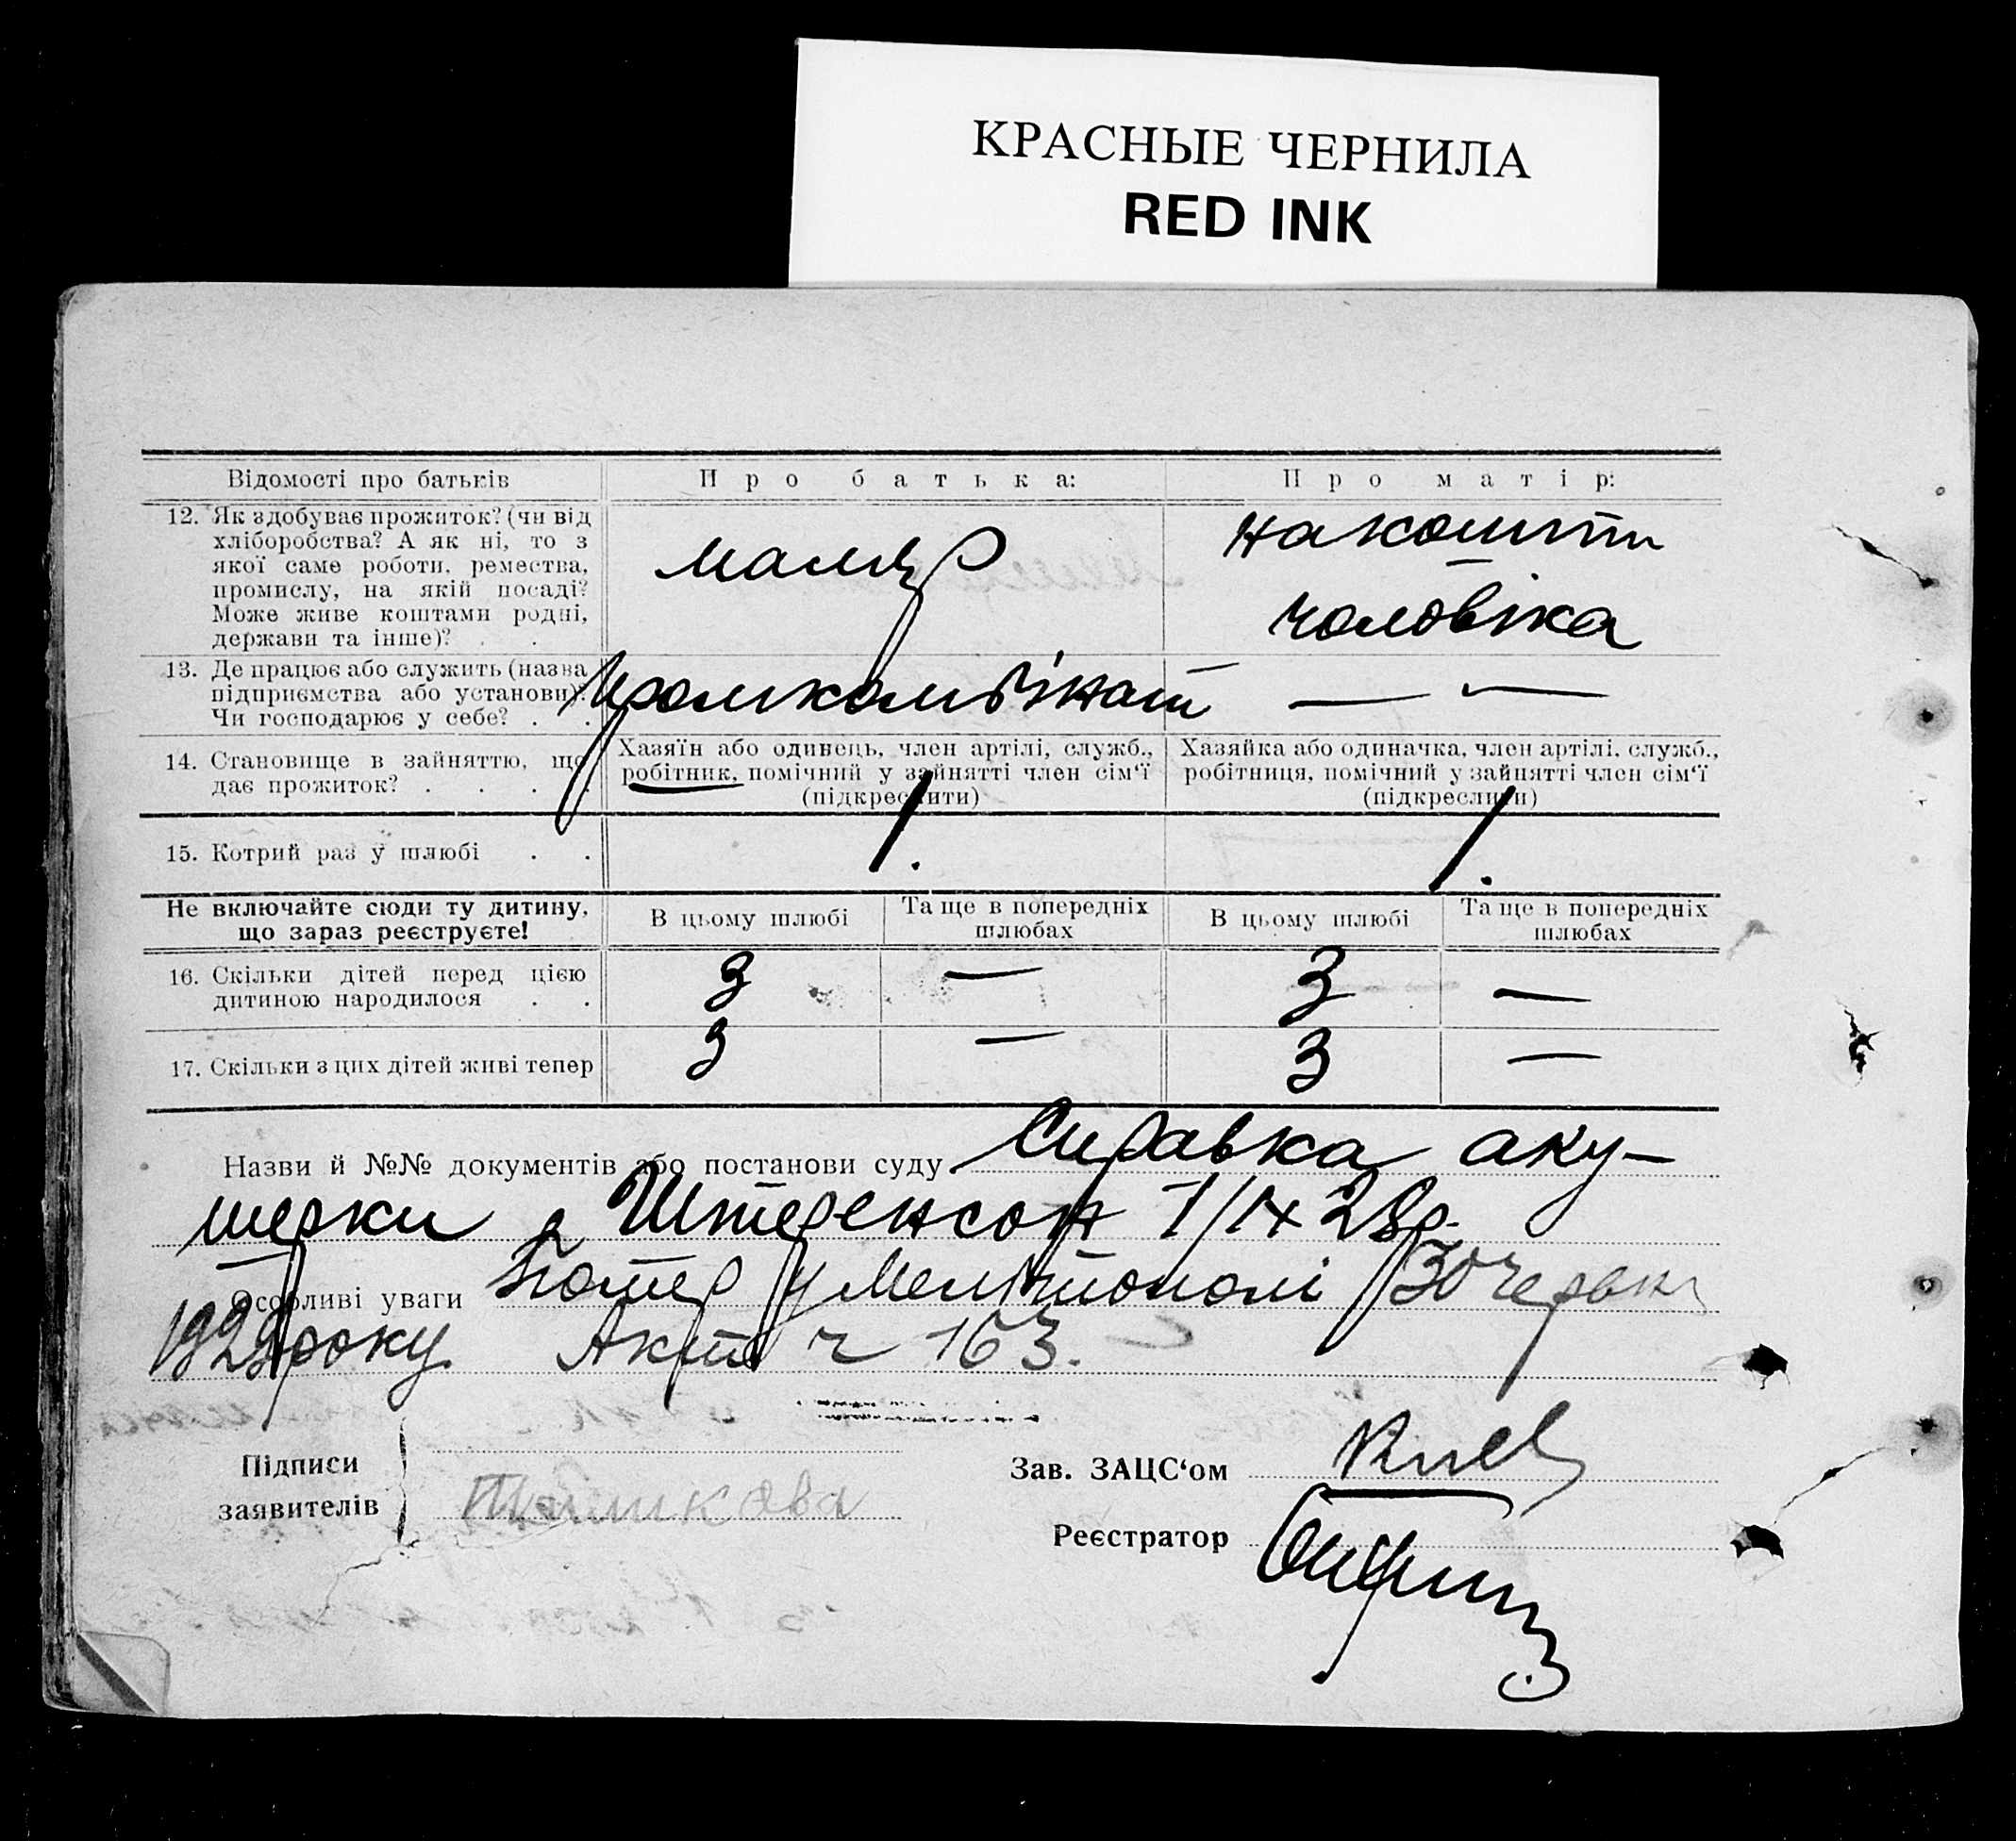 КРАСНЫЕ ЧЕРНИЛА
RED INK
Відомості про батьків
Про батька:
Про матір:
12. Як здобуває прожиток? (чи від
хліборобства? А як ні, то з
якої саме роботи, ремества,
промислу, на якій посаді?
Може живе коштами родні,
держави та інше)? . .
маляр
на кошти
чоловіка
13. Де працює або служить (назва
підприємства або установи)?
Чи господарює у себе? . .
Промкомбінат
— —
14. Становище в зайняттю, що
дає прожиток? . . . .
Хазяїн або одинець, член артілі, служб.,
робітник, помічний у зайнятті член сім‘ї
(підкреслити)
Хазяйка або одиначка, член артілі, служб.,
робітниця, помічний у зайнятті член сім‘ї
(підкреслити)
15. Котрий раз у шлюбі . .
1.
1.
Не включайте сюди ту дитину,
що зараз реєструєте!
В цьому шлюбі
Та ще в попередніх
шлюбах
В цьому шлюбі
Та ще в попередніх
шлюбах
16. Скільки дітей перед цією
дитиною народилося . .
3 — 3 —
17. Скільки з цих дітей живі тепер
3 — 3 —
Назви й №№ документів або постанови суду Справка аку-
шерки Штеренсон 1/IX 28р.
Особливі уваги Помер у Мелітополі 30 червн
1929 року Акт ч 163.
Підписи
заявителів
Зав. ЗАЦС‘ом
Реєстратор